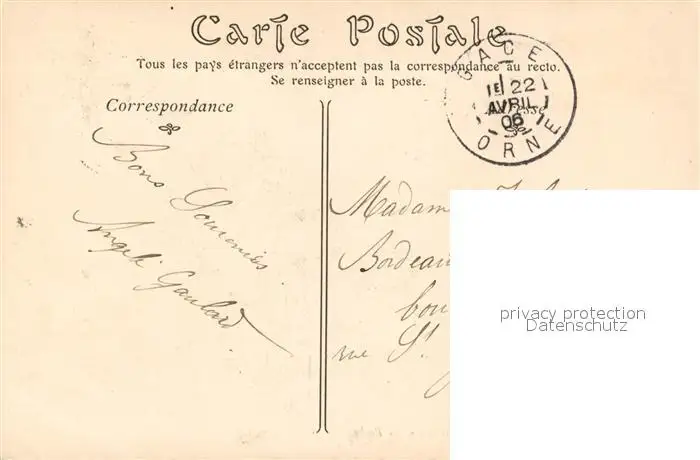 Carte Postale
Tous les pays étrangers n'acceptent pas la correspondance au recto.
Se renseigner à la poste.
Correspondance
GACE
1E 22
AVRIL
06
ORNE
Bons Souvenirs
Angèle Gaulard
Madam
Bordeau
rue St
privacy protection
Datenschutz